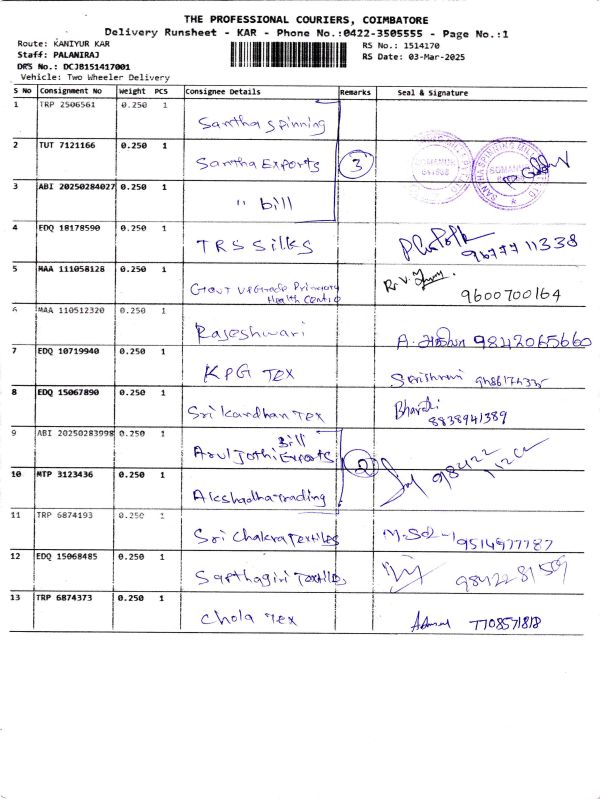 THE PROFESSIONAL COURIERS, COIMBATORE
Delivery Runsheet - KAR - Phone No.:0422-3505555 - Page No.:1
Route: KANIYUR KAR RS No.: 1514170
Staff: PALANIRAJ RS Date: 03-Mar-2025
DRS No.: DCJB151417001
Vehicle: Two Wheeler Delivery
S No Consignment No Weight PCS Consignee Details Remarks Seal & Signature
1 TRP 2506561 0.250 1 Santha Spinning
2 TUT 7121166 0.250 1 Santha Exports 3
3 ABI 20250284027 0.250 1 " bill
4 EDQ 18178590 0.250 1 TRS Silks 96777 11338
5 MAA 111058128 0.250 1 Govt Primary
Health Centre 9600700164
6 MAA 110512320 0.250 1 Rajeshwari A. 9842065660
7 EDQ 10719940 0.250 1 KPG Tex
8 EDQ 15067890 0.250 1 Sri Kandhan Tex Bharathi
8838941389
9 ABI 20250283998 0.250 1 Bill
Arul Jothi Exports 2
10 MTP 3123436 0.250 1 Akshadha Trading 98422
11 TRP 6874193 0.250 1 Sri Chakra Textiles 9514977787
12 EDQ 15068485 0.250 1 Sapthagiri Textiles
13 TRP 6874373 0.250 1 Chola Tex 7708571818